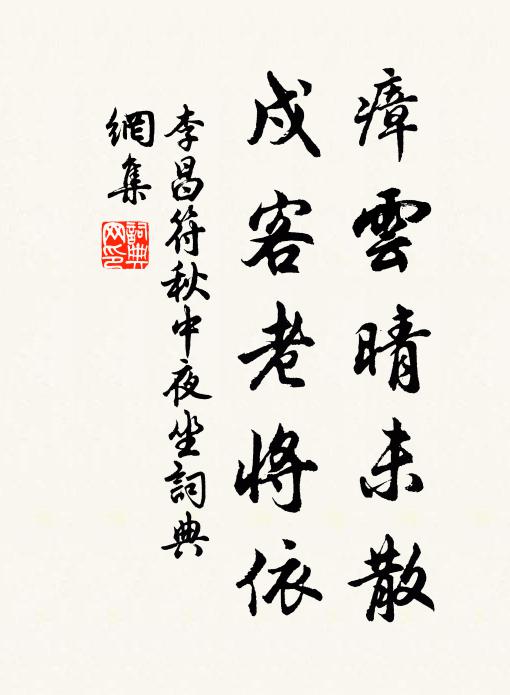 瘴雲晴未散
戍客老將依
李昌符秋中夜坐詞典
網集
詞典
网印